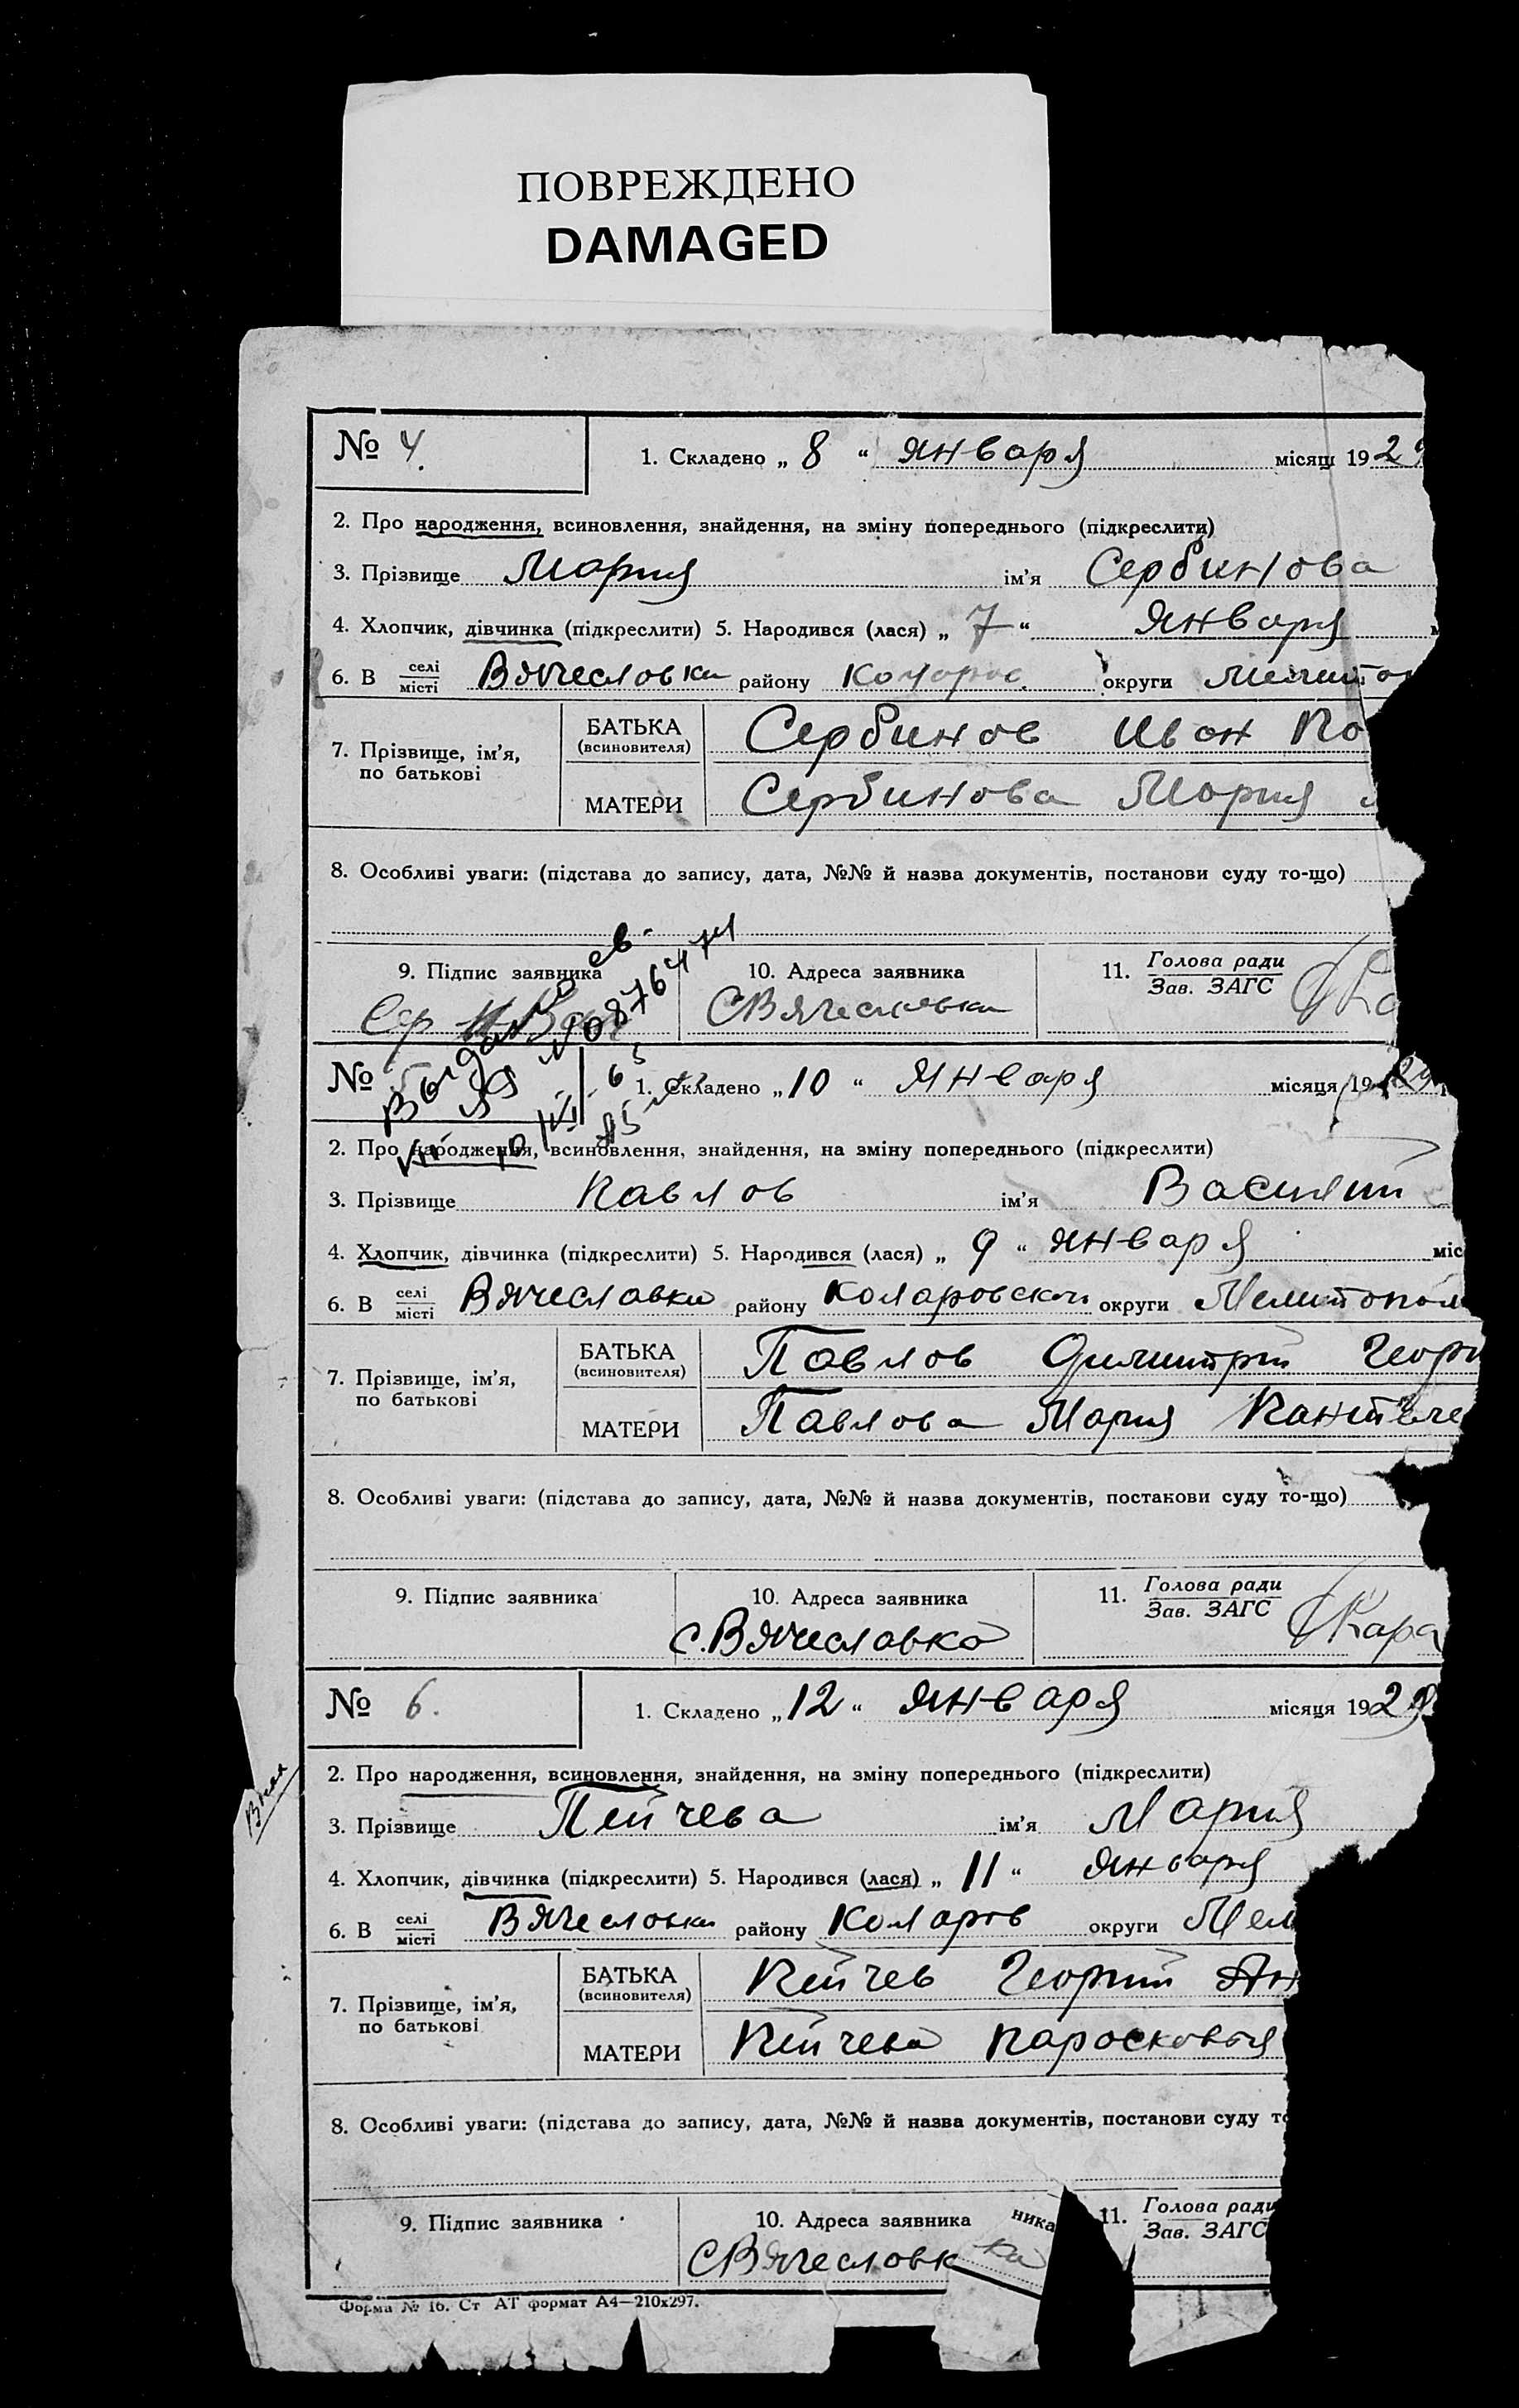 ПОВРЕЖДЕНО
DAMAGED
№ 4.
1. Складено „ 8 “ января місяц 192
2. Про народження, всиновлення, знайдення, на зміну попереднього (підкреслити)
3. Прізвище Мария ім’я Сербинова
4. Хлопчик, дівчинка (підкреслити) 5. Народився (лася) „ 7 “ января
6. В селі/місті Вячеславка району Коларов. округи Мелитоп
7. Прізвище, ім’я, по батькові
БАТЬКА (всиновителя) Сербинов Иван По
МАТЕРИ Сербинова Мария
8. Особливі уваги: (підстава до запису, дата, №№ й назва документів, постанови суду то-що)
9. Підпис заявника Сер
10. Адреса заявника С Вячеславка
11. Голова ради/Зав. ЗАГС
Выдано св.
№ 5
1. Складено „ 10 “ января місяця 1929
2. Про народження, всиновлення, знайдення, на зміну попереднього (підкреслити)
3. Прізвище Павлов ім’я Василий
4. Хлопчик, дівчинка (підкреслити) 5. Народився (лася) „ 9 “ января міс
6. В селі/місті Вячеславка району Коларовский округи Мелитопол
7. Прізвище, ім’я, по батькові
БАТЬКА (всиновителя) Павлов Димитрий Георг
МАТЕРИ Павлова Мария
8. Особливі уваги: (підстава до запису, дата, №№ й назва документів, постанови суду то-що)
9. Підпис заявника
10. Адреса заявника с. Вячеславка
11. Голова ради/Зав. ЗАГС Кара
№ 6.
1. Складено „ 12 “ января місяця 1929
2. Про народження, всиновлення, знайдення, на зміну попереднього (підкреслити)
3. Прізвище Пейчева ім’я Мария
4. Хлопчик, дівчинка (підкреслити) 5. Народився (лася) „ 11 “ января
6. В селі/місті Вячеславка району Коларов округи Мел
7. Прізвище, ім’я, по батькові
БАТЬКА (всиновителя) Пейчев Георгий Ан
МАТЕРИ Пейчева Парасковья
8. Особливі уваги: (підстава до запису, дата, №№ й назва документів, постанови суду то
9. Підпис заявника
10. Адреса заявника С Вячеславк
ника
ка
11. Голова ради/Зав. ЗАГС
Форма № 16. Ст АТ формат А4—210х297.